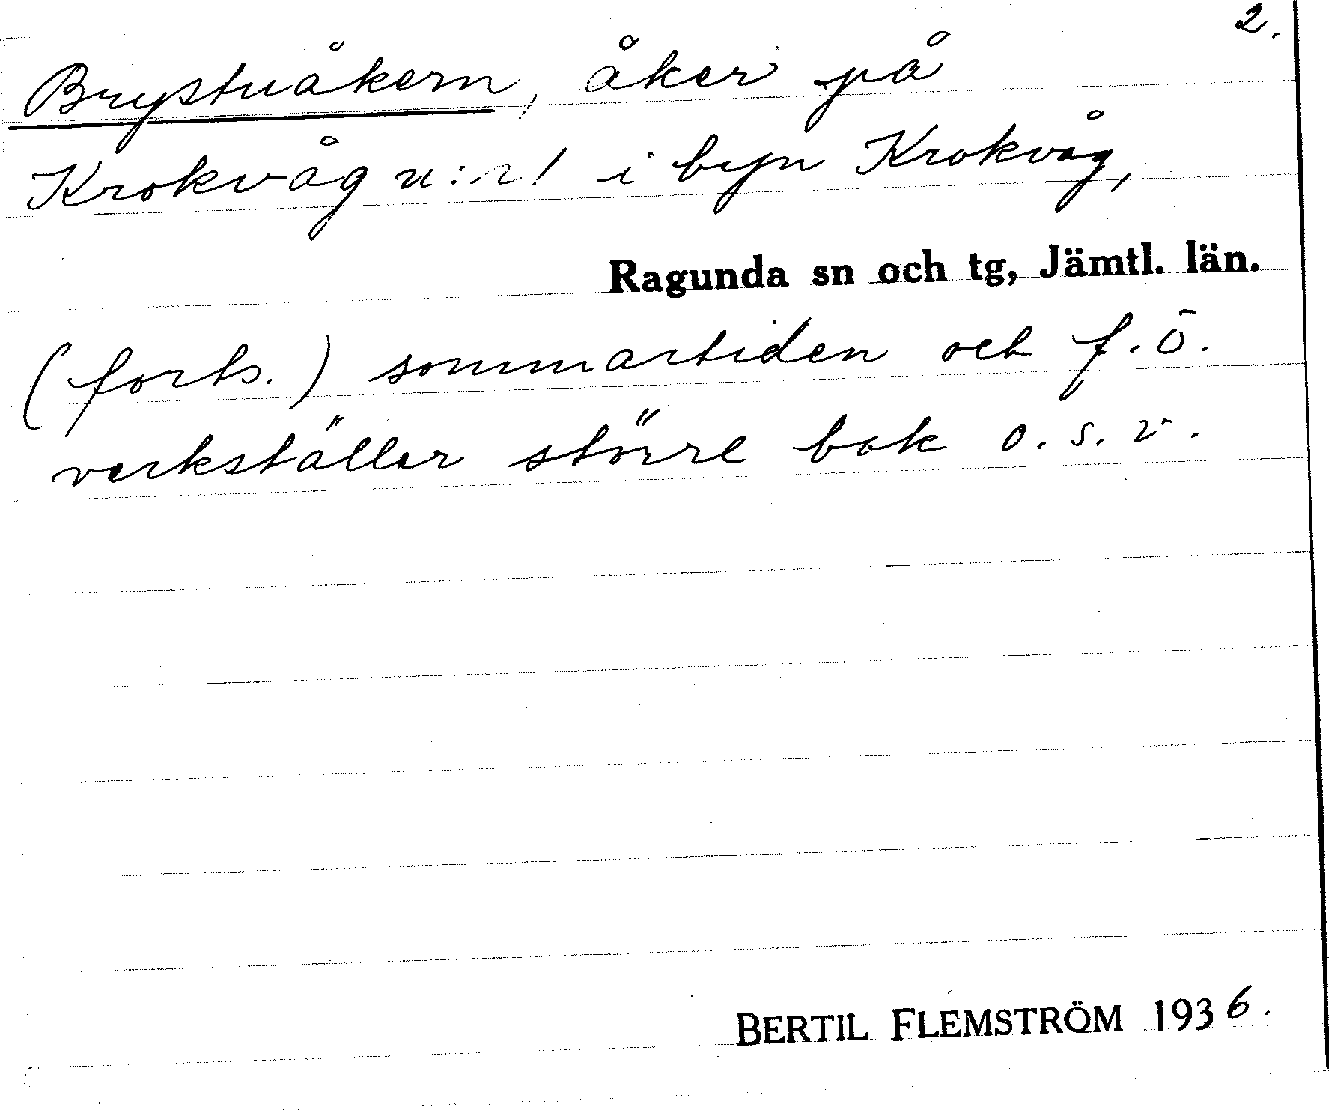 2.
Brystuåkern, åker på
Krokvåg n:r 1 i byn Krokvåg,
Ragunda sn och tg, Jämtl. län.
(forts.) sommartiden och f.ö.
verkställer större bak o.s.v.
BERTIL FLEMSTRÖM 1936.